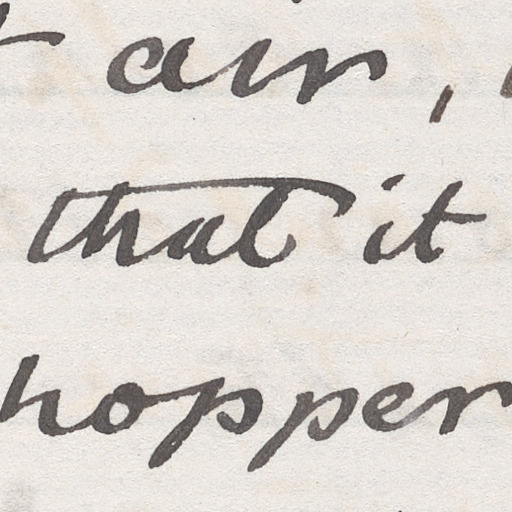 air,
that it
hopper